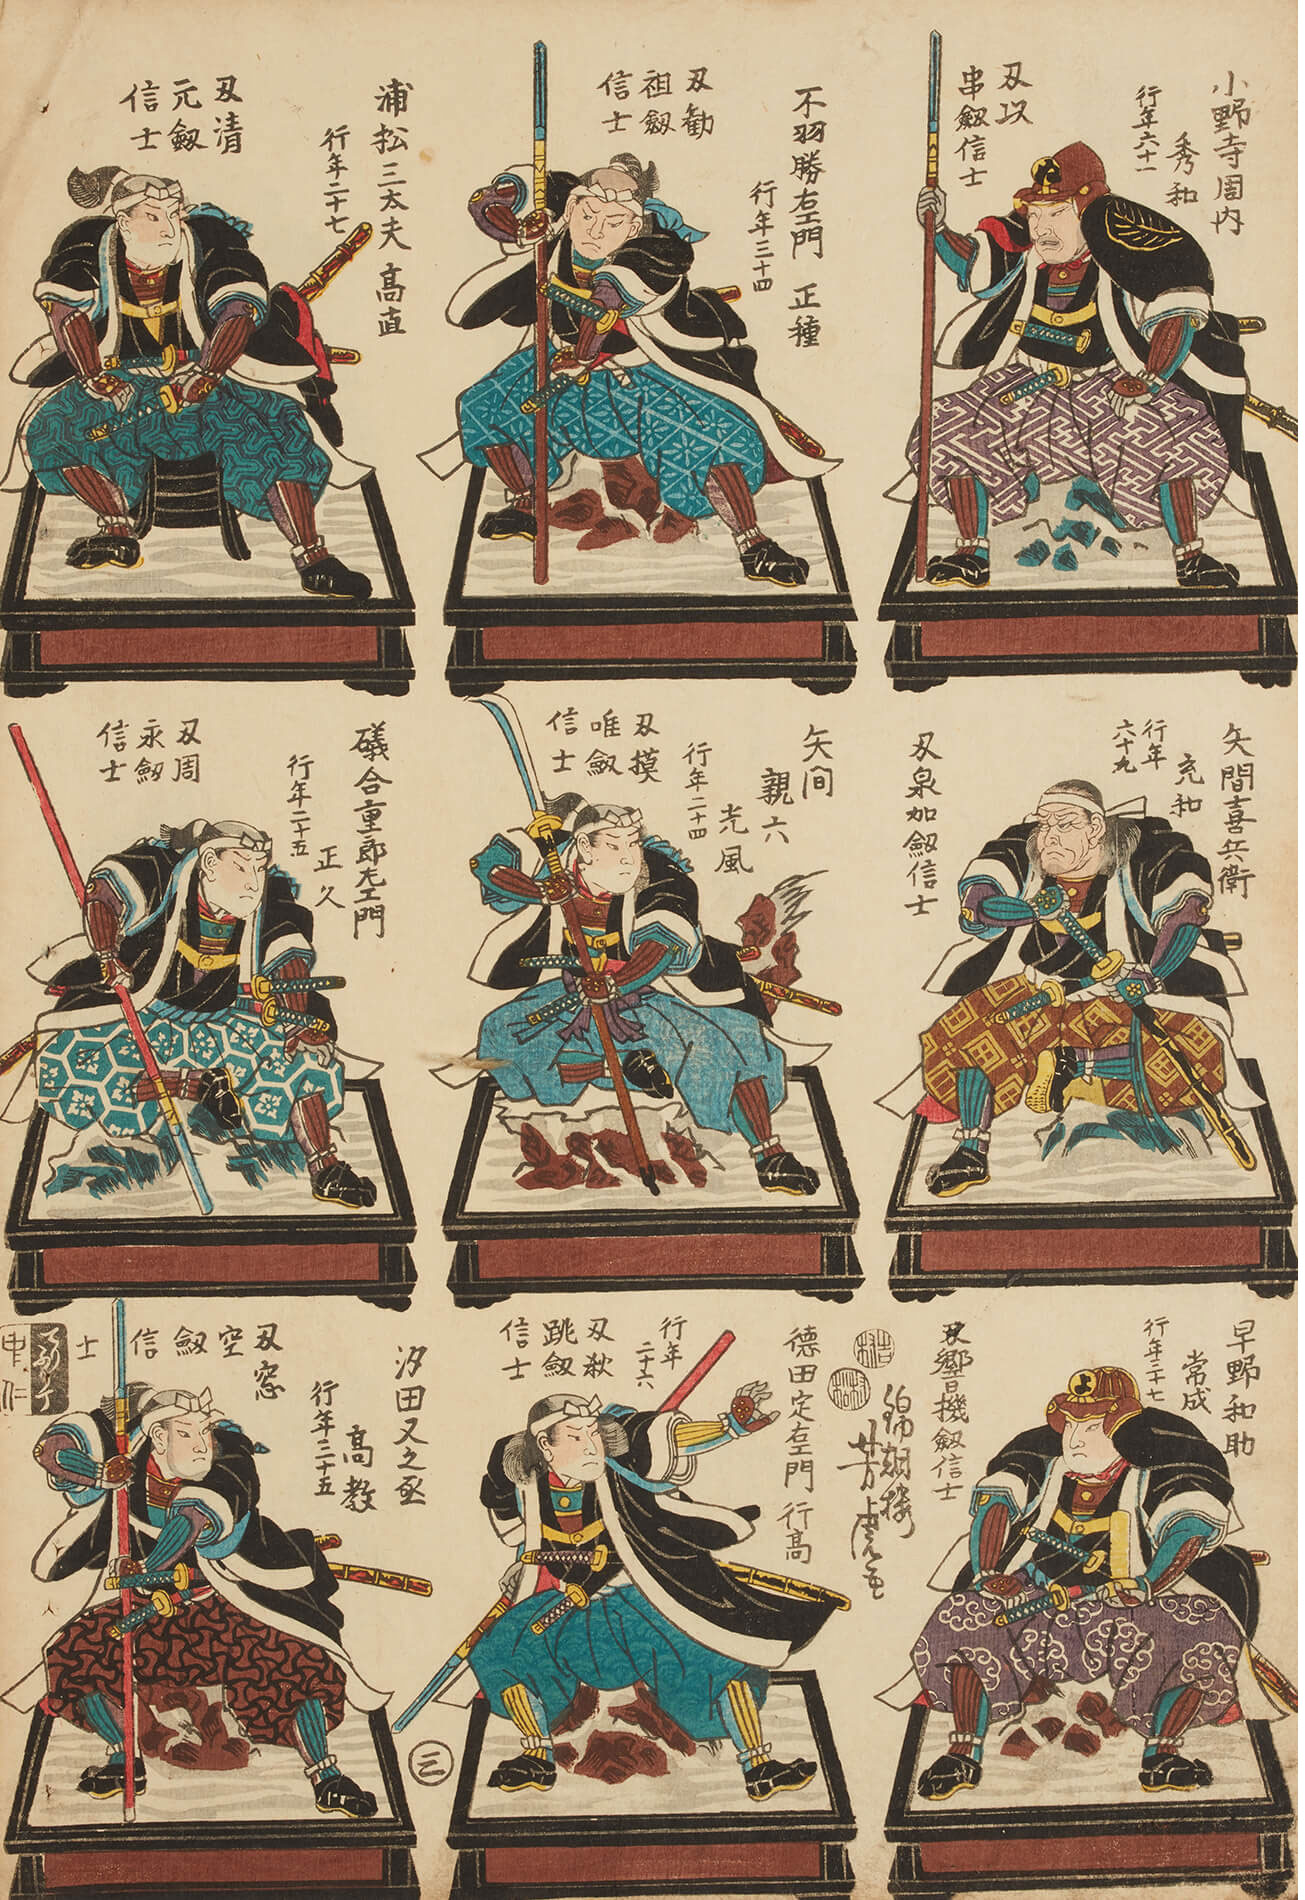 小野寺周内
秀和
行年六十一
刄以
串劔信士
不羽勝右エ門 正種
行年三十四
刄勧
祖劔
信士
浦松三太夫 高直
行年二十七
刄清
元劔
信士
矢間喜兵衛
充和
行年
六十九
刄泉加劔信士
矢间
親六
光風
行年二十四
刄摸
唯劔
信士
礒合重郎左エ門
正久
行年二十五
刄周
永劔
信士
早野和助
常成
行年三十七
刄響機劔信士
錦朝楼
芳虎画
徳田定右エ門 行高
行年
二十六
刄
跳劔
信士
汐田又之丞
高教
行年三十五
刄窓
空劔信士
三